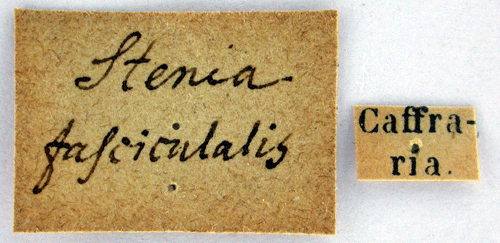 Stenia
fasciculalis
Caffra-
ria.